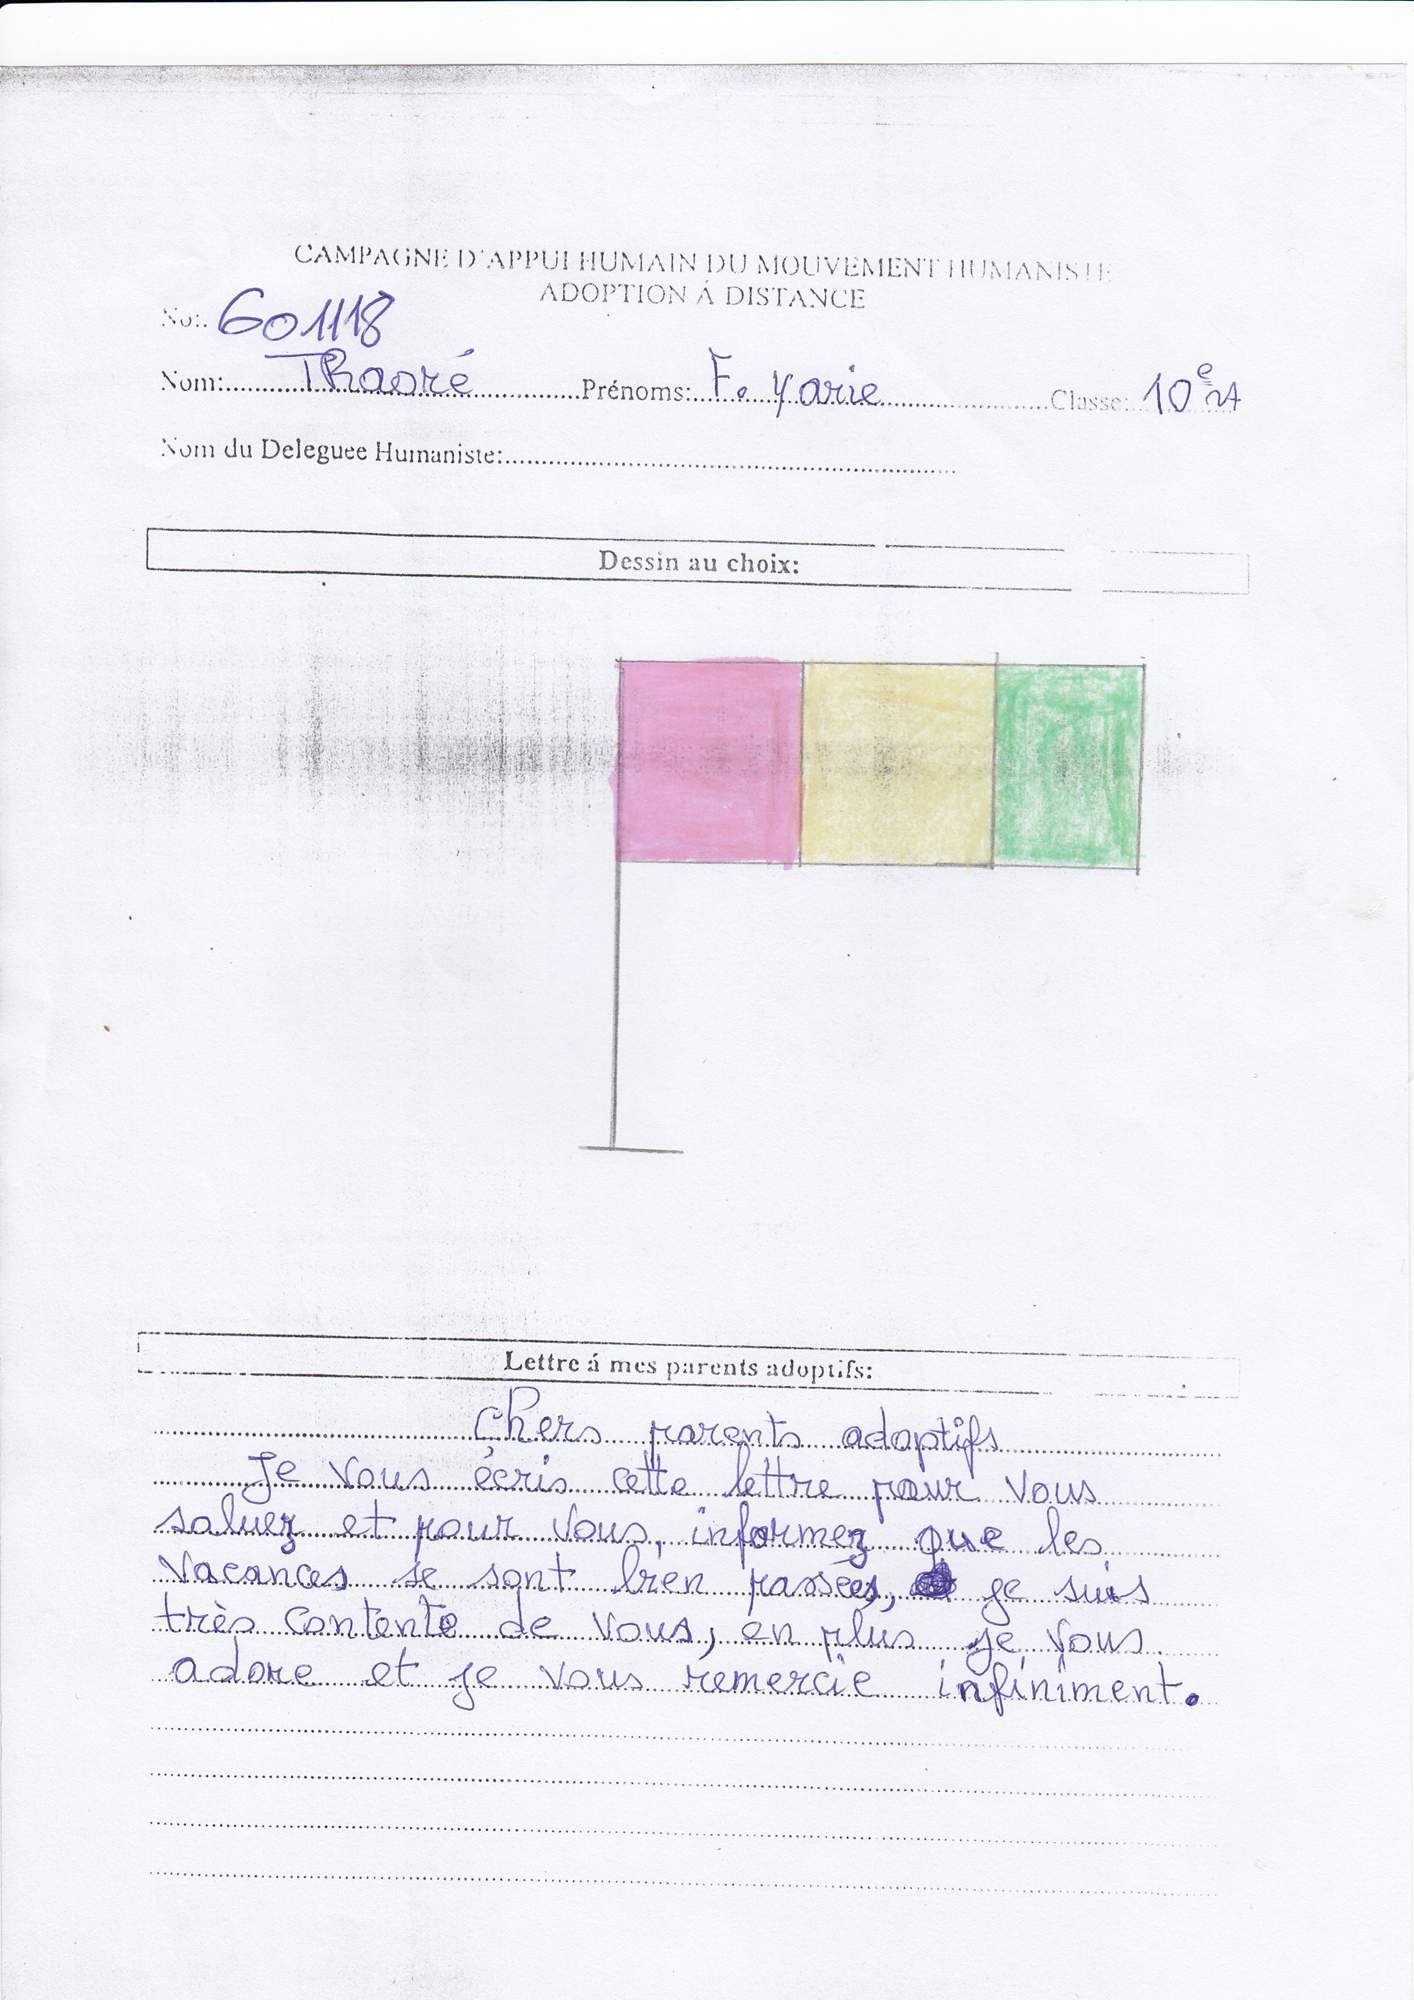 CAMPAGNE D'APPUI HUMAIN DU MOUVEMENT HUMANISTE
ADOPTION Á DISTANCE
No:. G01118
Nom:....Thaoré....Prénoms:..F. Yarie....Classe: 10e
Nom du Deleguee Humaniste:....
Dessin au choix:
Lettre á mes parents adoptifs:
Chers parents adoptifs
Je vous écris cette lettre pour vous
saluez et pour vous informez que les
vacances se sont bien passées, je suis
très contente de vous, en plus je vous
adore et je vous remercie infiniment.